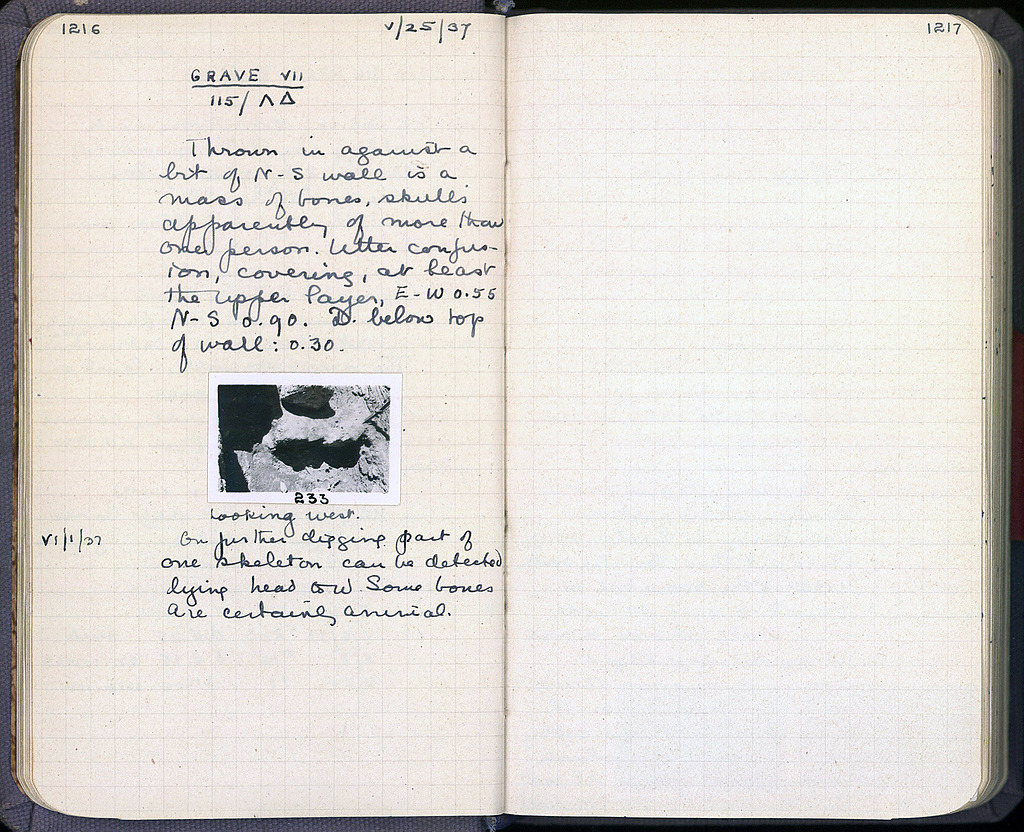 1216
V/25/37
GRAVE VII
115/ΛΔ
Thrown in against a
bit of N-S wall is a
mass of bones, skulls
apparently of more than
one person. Utter confus-
ion, covering, at least
the upper layer, E-W 0.55
N-S 0.90. D. below top
of wall: 0.30.
233
Looking west.
VI/1/37
On further digging part of
one skeleton can be detected
lying head to W. Some bones
are certainly animal.
1217